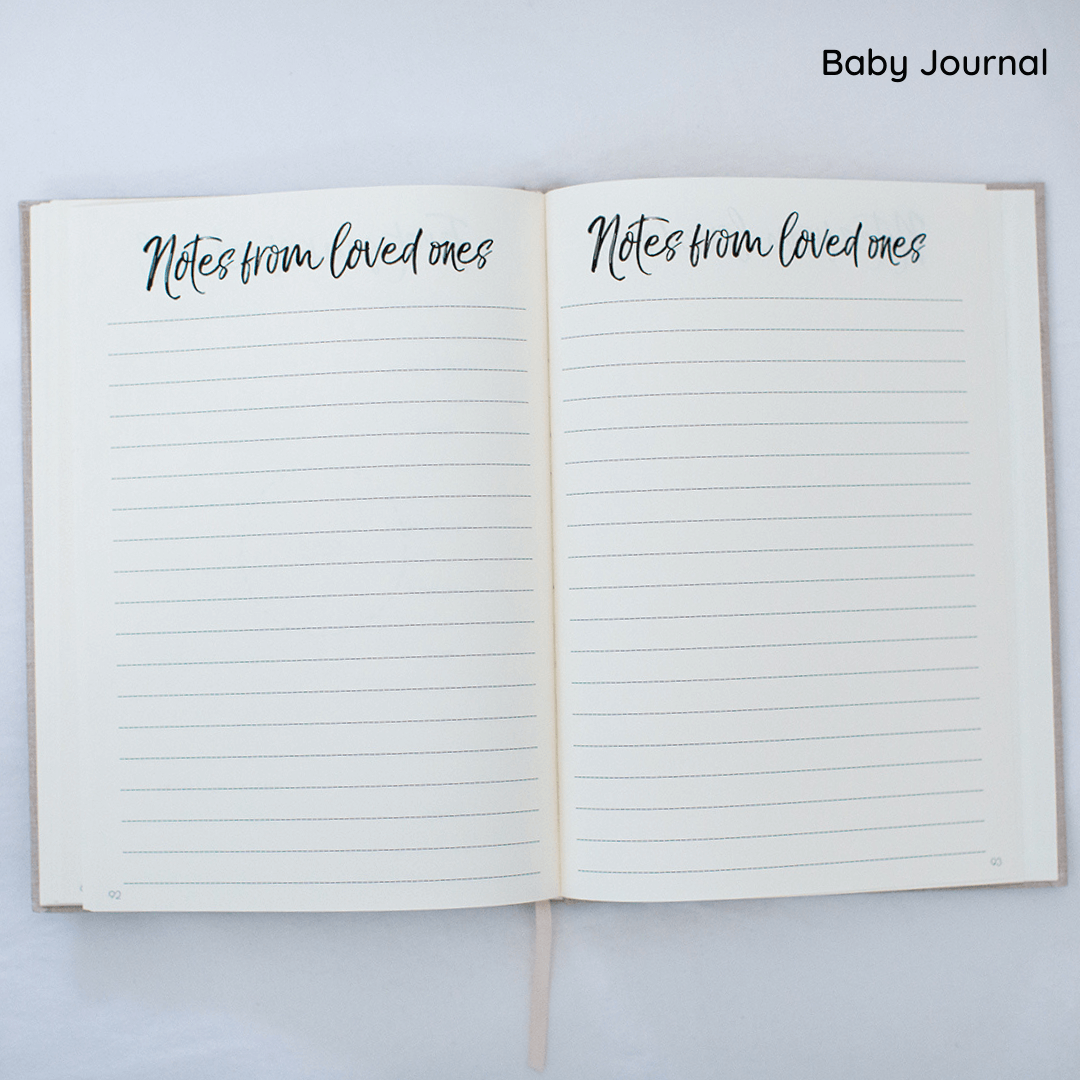 Baby Journal
Notes from loved ones
Notes from loved ones
92
93